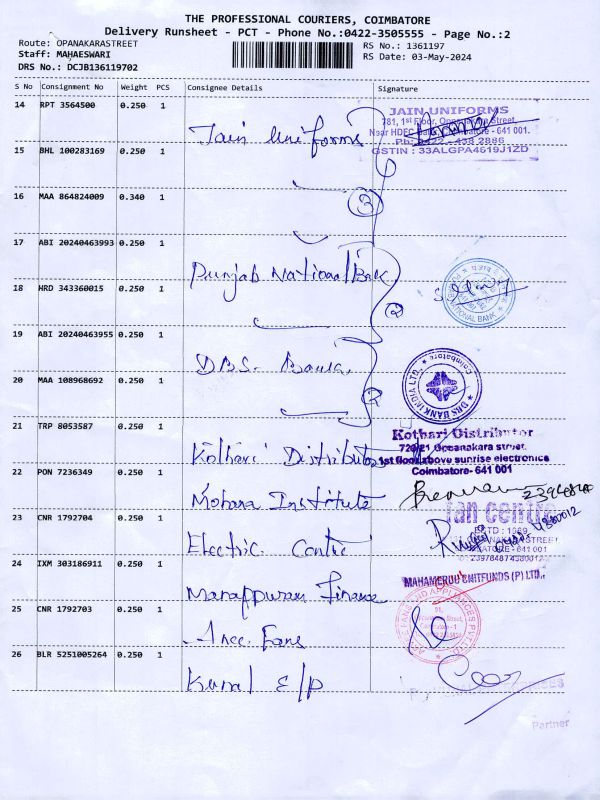 THE PROFESSIONAL COURIERS, COIMBATORE
Delivery Runsheet - PCT - Phone No.:0422-3505555 - Page No.:2
Route: OPANAKARASTREET
RS No.: 1361197
Staff: MAHAESWARI
RS Date: 03-May-2024
DRS No.: DCJB136119702
S No Consignment No Weight PCS Consignee Details Signature
14 RPT 3564500 0.250 1
Jain Uniforms
JAIN UNIFORMS
781, 1st Floor, Oppanakara Street,
Nsar HDFC Coimbatore - 641 001.
Ph: 0422 - 438 2866
GSTIN : 33ALGPA4619J1ZD
15 BHL 100283169 0.250 1
16 MAA 864824009 0.340 1
3
17 ABI 20240463993 0.250 1
Punjab National Bank
18 HRD 343360015 0.250 1
2
NATIONAL BANK
19 ABI 20240463955 0.250 1
DBS. Bank.
20 MAA 108968692 0.250 1
2
DBS BANK INDIA LTD.
Coimbatore
21 TRP 8053587 0.250 1
Kothari Distributor
Kothari Distributor
720/21 Oppanakara street,
1st floor, above sunrise electronics
Coimbatore- 641 001
22 PON 7236349 0.250 1
Mohana Institute
23 CNR 1792704 0.250 1
Electric Centre
fan centre
ESTD : 1969
24 IXM 303186911 0.250 1
Manappuram Finance
MAHAMERUU CHITFUNDS (P) LTD.,
25 CNR 1792703 0.250 1
Ance. Fans
26 BLR 5251005264 0.250 1
Kunal E/P
Partner